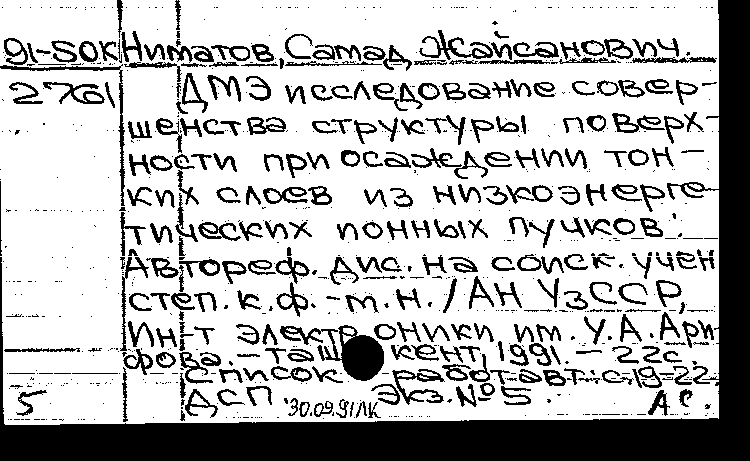 91-50К Ниматов, Самад Жайсанович.
2761 ДМЭ исследование совер-
шенства структуры поверх-
ности при осаждении тон-
ких слоев из низкоэнерге-
тических ионных пучков:
Автореф. дис. на соиск. учен
степ. к.ф.-м.н. / АН УзССР,
Ин-т электроники им. У.А. Ари-
фова. - Ташкент, 1991. - 22с.
Список работ авт.: с.19-22.
5 ДСП 30.09.91ЛК Экз. №5. АС.